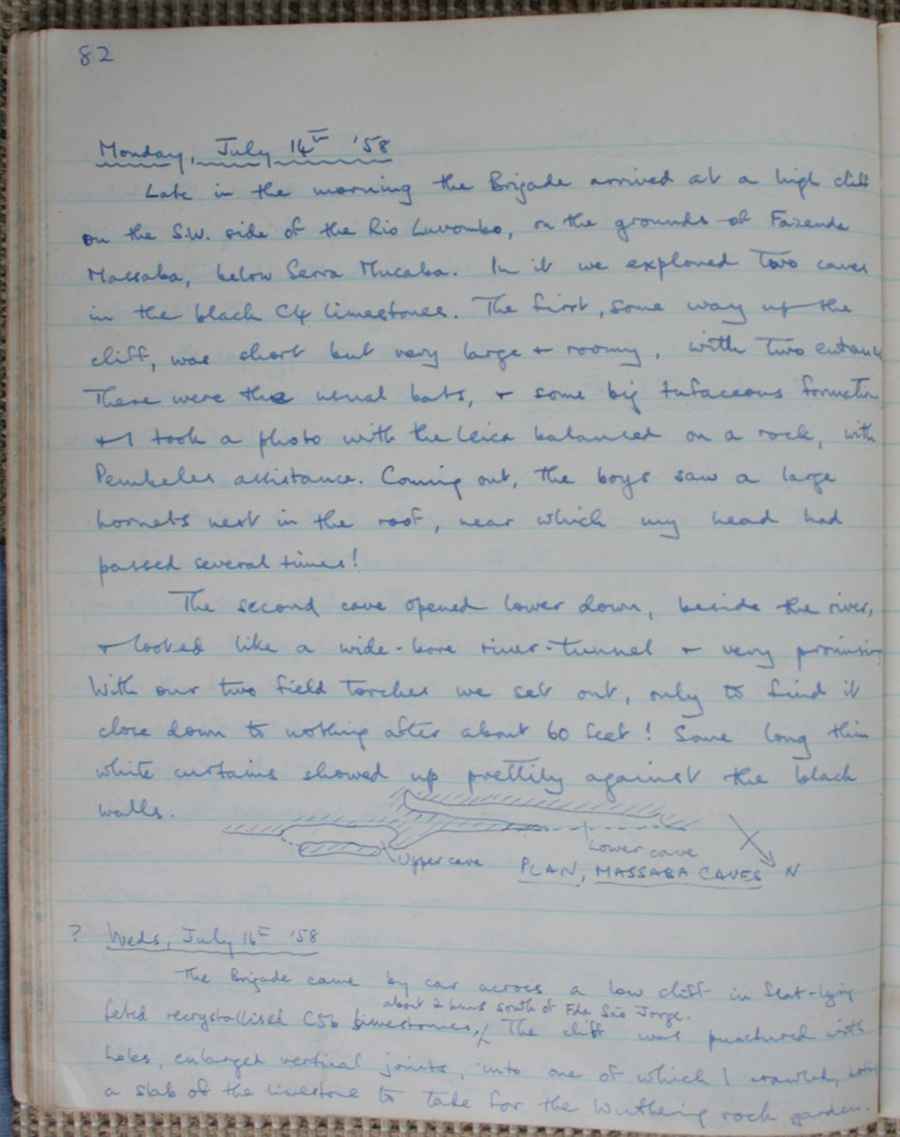 82
Monday, July 14th '58
Late in the morning the Brigade arrived at a high cliff
on the S.W. side of the Rio Luvombo, on the grounds of Fazenda
Massaba, below Serra Mucaba. In it we explored two caves
in the black C4 limestones. The first, some way up the
cliff, was short but very large & roomy, with two entran
There were the usual bats, & some big tufaceous formation
& I took a photo with the Leica balanced on a rock, with
Pembeles assistance. Coming out, the boys saw a large
hornets nest in the roof, near which my head had
passed several times!
The second cave opened lower down, beside the river,
& looked like a wide-bore river-tunnel & very promising
With our two field torches we set out, only to find it
close down to nothing after about 60 feet! Some long thin
white curtains showed up prettily against the black
walls.
Lower cave
Upper cave PLAN, MASSABA CAVES N
? Weds, July 16th '58
The Brigade came by car across a low cliff in flat-lying
about 2 kms south of Fda São Jorge.
fetid recrystallised C5b limestones, The cliff was punctured with
holes, enlarged vertical joints, into one of which I crawled,
a slab of the limestone to take for the Wuthering rock garden.